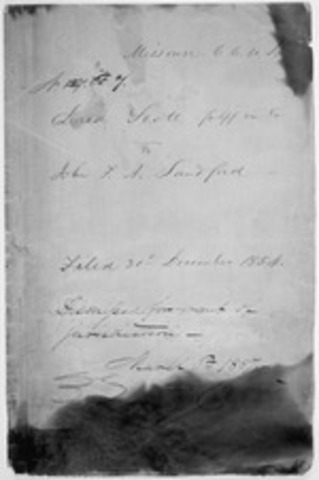 Missouri C. C. U. S.
Dred Scott pltff in Er
vs
John F. A. Sandford
Filed 30th December 1854.
Dismissed for want of
jurisdiction —
March 1857